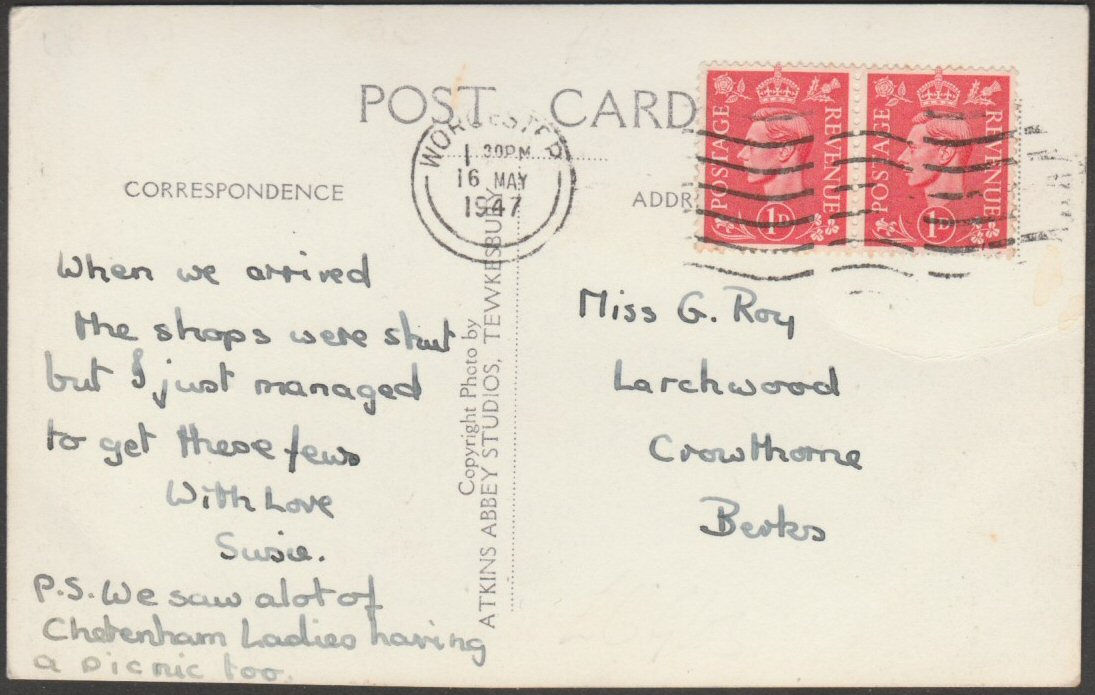 POST CARD
WORCESTER
1 30PM
16 MAY
1947
POSTAGE REVENUE
1D
POSTAGE REVENUE
1D
CORRESPONDENCE
ADDR
When we arrived
the shops were shut
but I just managed
to get these few
With Love
Susie.
P.S. We saw alot of
Chetenham Ladies having
a picnic too.
Copyright Photo by
ATKINS ABBEY STUDIOS, TEWKESBURY
Miss G. Roy
Larchwood
Crowthorne
Berks